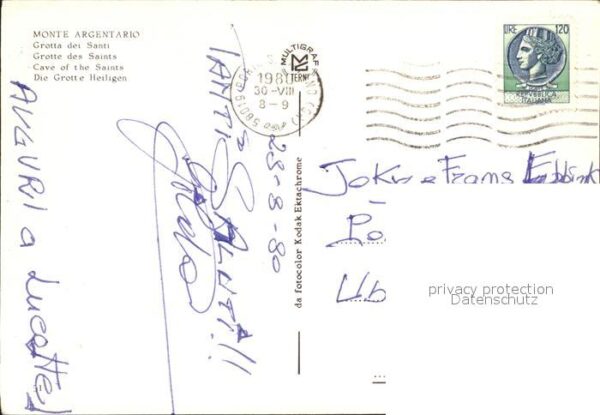 MONTE ARGENTARIO
Grotta dei Santi
Grotte des Saints
Cave of the Saints
Die Grotte Heiligen
AUGURI a Lucette!
TANTI SALUTI!!
28-8-80
da fotocolor Kodak Ektachrome
MULTIGRAF
TERNI
58019 PORTO S.
1980
30-VIII
8-9
LIRE 120
REPUBBLICA
ITALIANA
Frans
privacy protection
Datenschutz